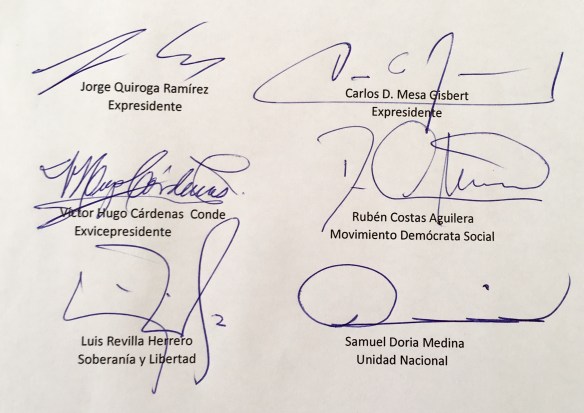 Jorge Quiroga Ramírez
Expresidente
Carlos D. Mesa Gisbert
Expresidente
Víctor Hugo Cárdenas Conde
Exvicepresidente
Rubén Costas Aguilera
Movimiento Demócrata Social
Luis Revilla Herrero
Soberanía y Libertad
Samuel Doria Medina
Unidad Nacional